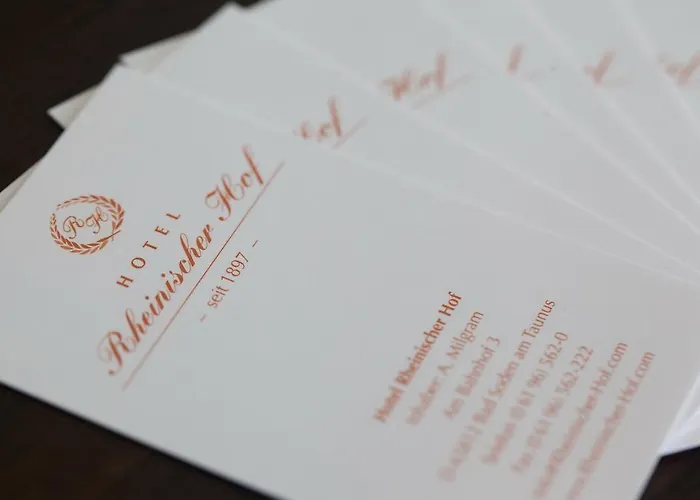 RH
HOTEL
Rheinischer Hof
– seit 1897 –
Hotel Rheinischer Hof
Inhaber: A. Milgram
Am Bahnhof 3
Bad Soden am Taunus
Telefon (0 61 96) 562-0
Fax (0 61 96) 562-222
Hof
Hof